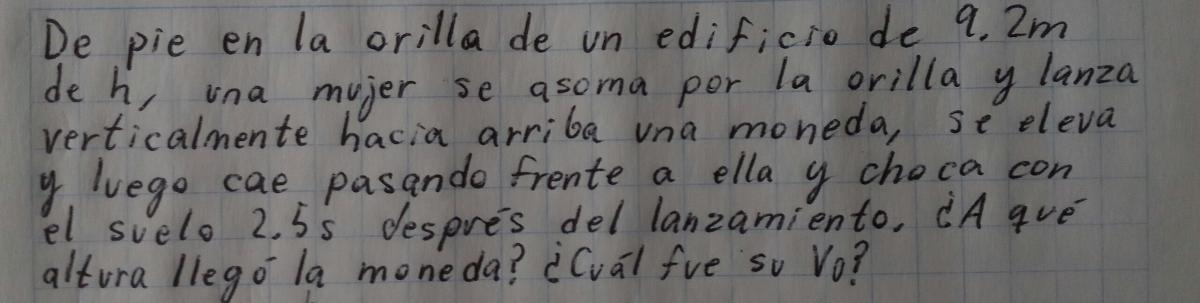 De pie en la orilla de un edificio de 9.2m
de h, una mujer se asoma por la orilla y lanza
verticalmente hacia arriba una moneda, se eleva
y luego cae pasando frente a ella y choca con
el suelo 2.5s después del lanzamiento. ¿A qué
altura llegó la moneda? ¿Cuál fue su V₀?